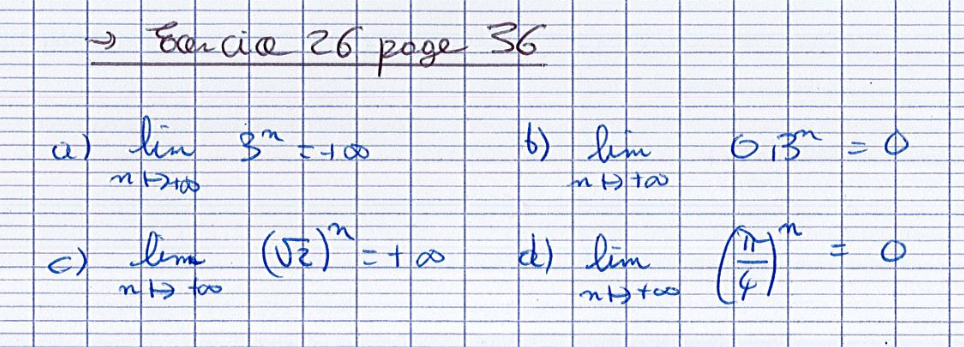 → Exercice 26 page 36
a) lim n↦+∞ 3ⁿ = +∞ b) lim n↦+∞ 0,3ⁿ = 0
c) lim n↦+∞ (√2)ⁿ = +∞ d) lim n↦+∞ (π/4)ⁿ = 0